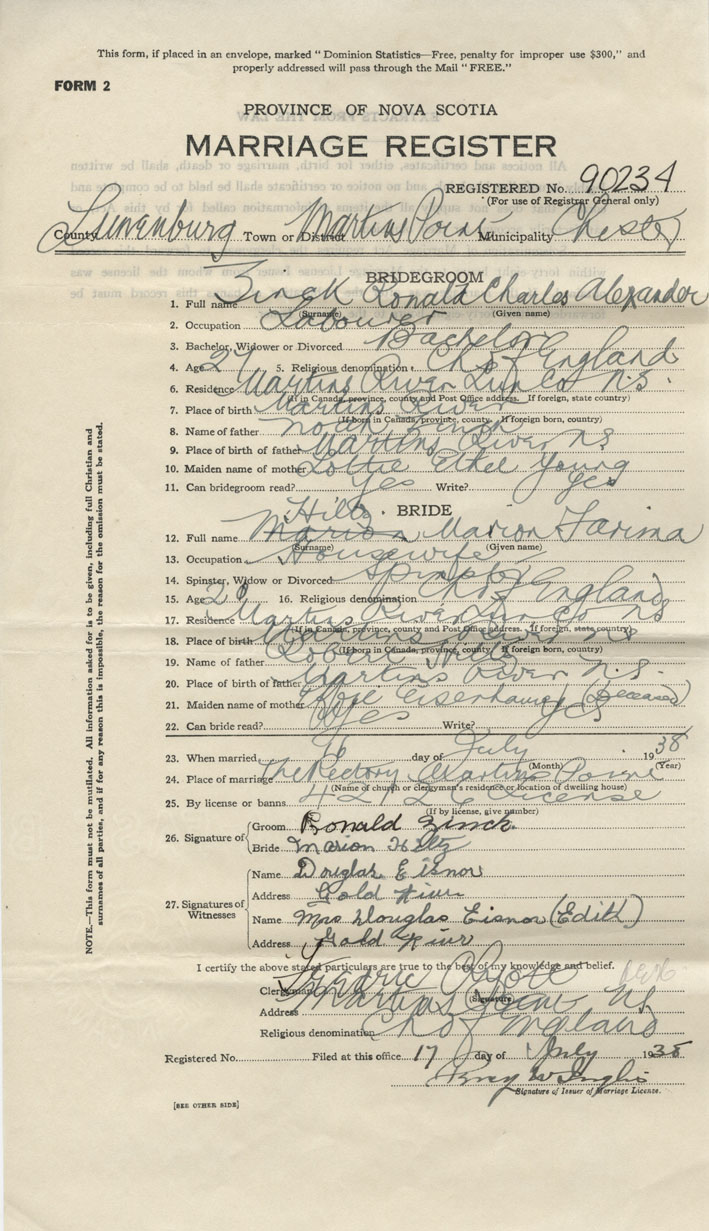 This form, if placed in an envelope, marked "Dominion Statistics—Free, penalty for improper use $300," and
properly addressed will pass through the Mail "FREE."
FORM 2
PROVINCE OF NOVA SCOTIA
MARRIAGE REGISTER
REGISTERED No. 90234
(For use of Registrar General only)
County Lunenburg Town or District Martins Point Municipality Chester
BRIDEGROOM
1. Full name Zinck Ronald Charles Alexander
(Surname) (Given name)
2. Occupation Labourer
3. Bachelor, Widower or Divorced Bachelor
4. Age 27 5. Religious denomination Ch of England
6. Residence Martins River Lun Co N.S.
(If in Canada, province, county and Post Office address. If foreign, state country)
7. Place of birth Martins River
(If born in Canada, province, county. If foreign born, country)
8. Name of father Zinck
9. Place of birth of father Martins River NS
10. Maiden name of mother Lottie Ethel Young
11. Can bridegroom read? Yes Write? Yes
BRIDE
Hiltz
12. Full name Marion Marion
(Surname) (Given name)
13. Occupation Housewife
14. Spinster, Widow or Divorced Spinster
15. Age 16. Religious denomination Ch of England
17. Residence Martins River Lun Co NS
(If in Canada, province, county and Post Office address. If foreign, state country)
18. Place of birth Martins River NS
(If born in Canada, province, county. If foreign born, country)
19. Name of father Robert Hiltz
20. Place of birth of father Martins River N.S.
21. Maiden name of mother Eisenhauer (Deceased)
22. Can bride read? Yes Write? Yes
23. When married 16 day of July 1938
(Month) (Year)
24. Place of marriage The Rectory Martins Point
(Name of church or clergyman's residence or location of dwelling house)
25. By license or banns License
(If by license, give number)
26. Signature of
Groom Ronald Zinck
Bride Marion Hiltz
27. Signatures of Witnesses
Name Douglas Eisnor
Address Gold River
Name Mrs Douglas Eisnor (Edith)
Address Gold River
I certify the above stated particulars are true to the best of my knowledge and belief.
Clergyman
(Signature)
Address Martins Point NS
Religious denomination Ch of England
Registered No. Filed at this office 17 day of July 1938
Signature of Issuer of Marriage License.
[SEE OTHER SIDE]
NOTE.—This form must not be mutilated. All information asked for is to be given, including full Christian and
surnames of all parties, and if for any reason this is impossible, the reason for the omission must be stated.